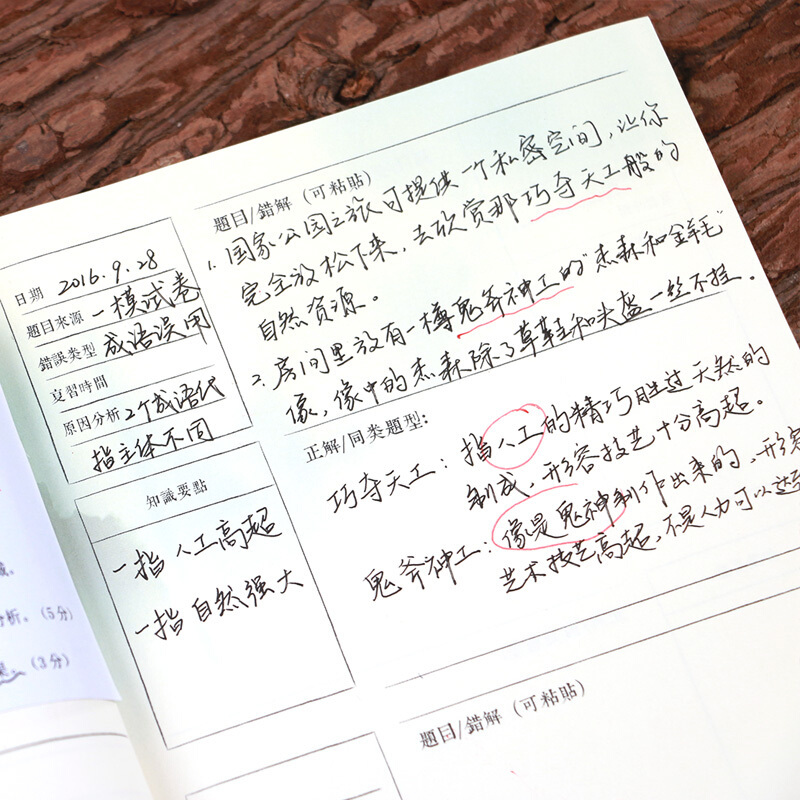 日期 2016.9.28
題目来源 一模试卷
錯誤类型 成语误用
复習時間
原因分析 2个成语代
指主体不同
知識要點
一指人工高超
一指自然强大
題目/錯解（可粘貼）
1. 国家公园之旅可提供一个私密空间，让你
完全放松下来，去欣赏那巧夺天工般的
自然资源。
2. 房间里放有一樽鬼斧神工的"杰森和金羊毛"
像，像中的杰森除了草鞋和头盔一丝不挂。
正解/同类題型：
巧夺天工：指人工的精巧胜过天然的
制成，形容技艺十分高超。
鬼斧神工：像是鬼神制作出来的，形容
艺术技艺高超，不是人力可以达到
題目/錯解（可粘貼）
析。（5分）
（3分）